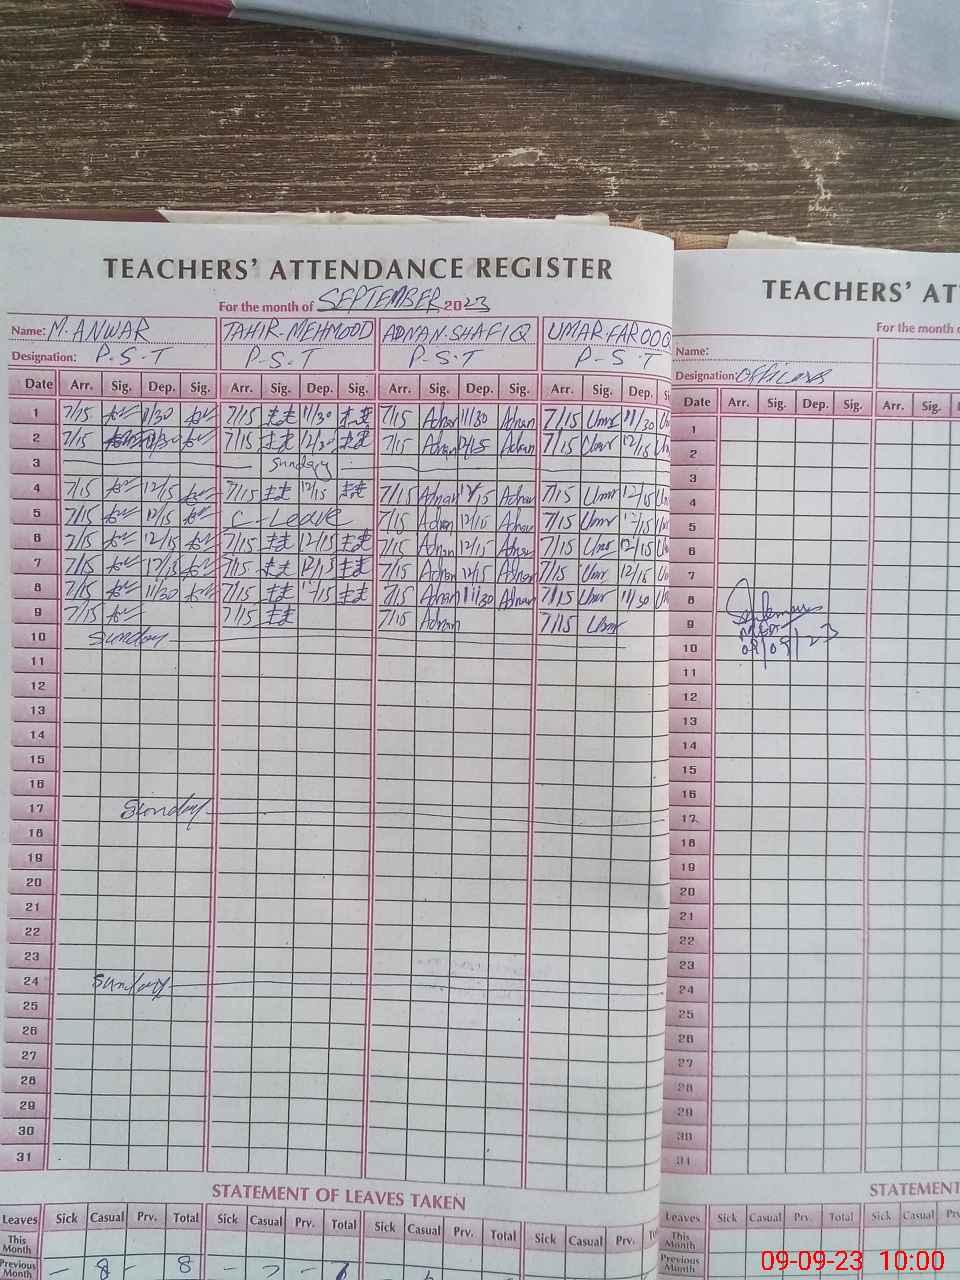 TEACHERS' ATTENDANCE REGISTER
For the month of SEPTEMBER 2023
Name: M. ANWAR TAHIR-MEHMOOD ADNAN.SHAFIQ UMAR FAROOQ
Designation: P.S.T P.S.T P.S.T P-S.T
Date Arr. Sig. Dep. Sig. Arr. Sig. Dep. Sig. Arr. Sig. Dep. Sig. Arr. Sig. Dep.
1 7/15 11/30 7/15 11/30 7/15 Adnan 11/30 Adnan 7/15 Umar 11/30
2 7/15 7/15 7/15 Adnan 12/15 Adnan 7/15 Umar 12/15
3 Sunday
4 7/15 12/15 7/15 12/15 7/15 Adnan Adnan 7/15 Umar 12/15
5 7/15 12/15 C-Leave 7/15 Adnan 12/15 Adnan 7/15 Umar
6 7/15 12/15 7/15 12/15 7/15 Adnan 12/15 Adnan 7/15 Umar 12/15
7 7/15 7/15 7/15 Adnan 12/15 Adnan 7/15 Umar 12/15
8 7/15 11/30 7/15 7/15 Adnan 11/30 Adnan 7/15 Umar 11/30
9 7/15 7/15 7/15 Adnan 7/15 Umar
10 Sunday
11
12
13
14
15
16
17 Sunday
18
19
20
21
22
23
24 Sunday
25
26
27
28
29
30
31
STATEMENT OF LEAVES TAKEN
Leaves Sick Casual Prv. Total Sick Casual Prv. Total Sick Casual Prv. Total Sick Casual Prv.
This Month
Previous Month - 8 - 8 -
TEACHERS' AT
For the month o
Name:
Designation: OFFICERS
Date Arr. Sig. Dep. Sig. Arr. Sig.
1
2
3
4
5
6
7
8
9
10
11
12
13
14
15
16
17
18
19
20
21
22
23
24
25
26
27
28
29
30
31
STATEMENT
Leaves Sick Casual Prv. Total Sick Casual
This Month
Previous Month
09-09-23 10:00